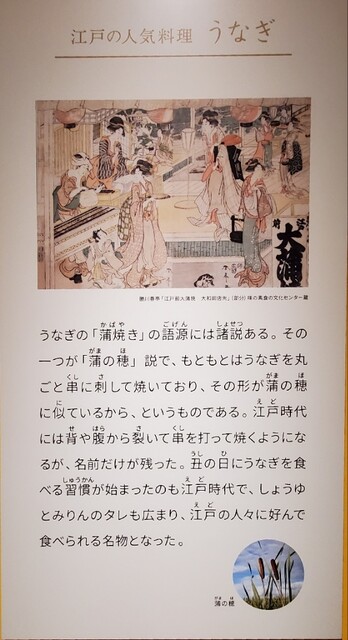 江戸の人気料理 うなぎ
大蒲
勝川春亭「江戸前大蒲焼 大和田善兵衛」(部分) 味の素食の文化センター蔵
うなぎの「蒲焼き」の語源には諸説ある。その
一つが「蒲の穂」説で、もともとはうなぎを丸
ごと串に刺して焼いており、その形が蒲の穂
に似ているから、というものである。江戸時代
には背や腹から裂いて串を打って焼くようにな
るが、名前だけが残った。丑の日にうなぎを食
べる習慣が始まったのも江戸時代で、しょうゆ
とみりんのタレも広まり、江戸の人々に好んで
食べられる名物となった。
蒲の穂